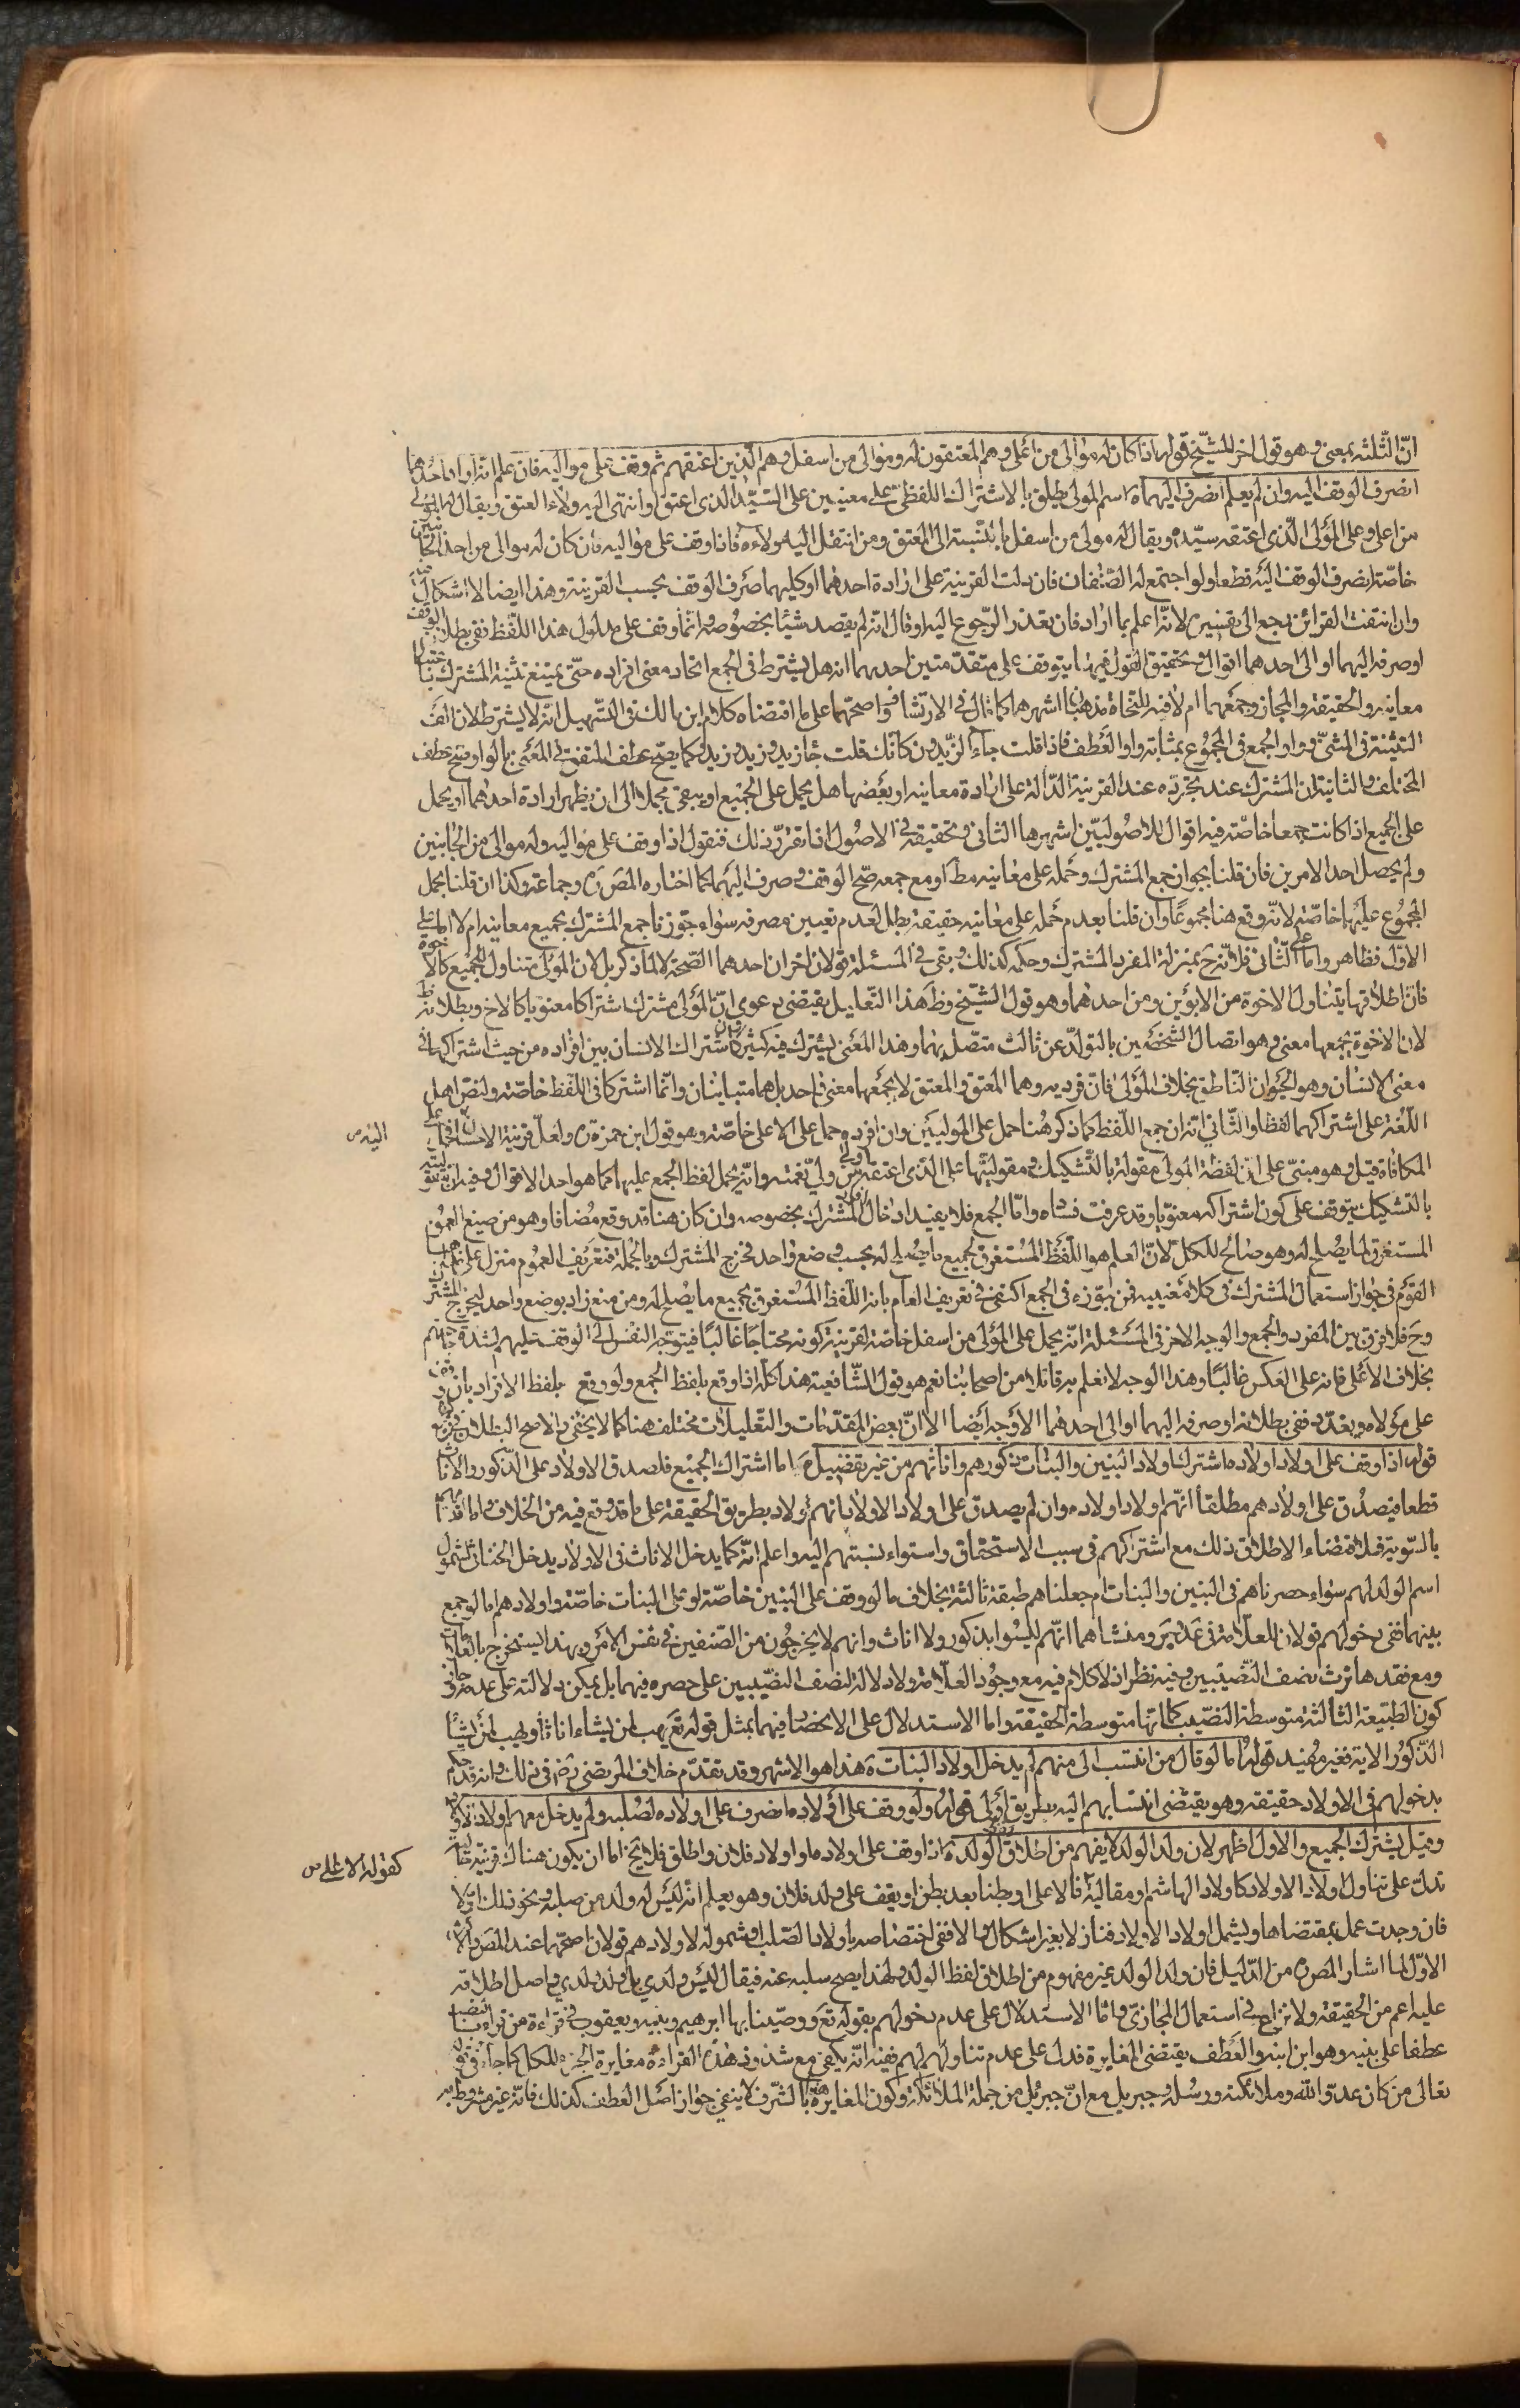 انّ الثّلثه بمعنى وهو قول اخر للشيّخ قوله اذا كان له موالى من اعلى وهم المعتقون له وموالى من اسفل وهم الّذين اعتقهم ثم وقف على مواليه فان علم انه اراد احدهما
انصرف الوقف اليه وان لم يعلم انصرف اليهما اسم المولى يطلق بالاشتراك اللفظى على معنيين على السّيد الذى اعتق او انتهى اليه ولاء العتق ويقال له المولى
من اعلى وعلى المولى الّذى اعتقه سيّده ويقال له مولى من اسفل بالنسبة الى المعتق ومن انتقل اليه ولاءه فاذا وقف على مواليه فان كان له موالى من احد الجانبين
خاصّة انصرف الوقف اليه قطعا ولو اجتمع له الصّنفان فان دلت القرينة على ارادة احدهما او كليهما صرف الوقف بحسب القرينة وهذا ايضا لا اشكال فيه
وان انتفت القرائن رجع الى تفسيره لانّه اعلم بما اراد فان تعذر الرّجوع اليه او قال انّه لم يقصد شيئا بخصوصه وانّما وقف على مدلول هذا اللّفظ ففى بطلان الوقف
او صرفه اليهما او الى احدهما اقوال وتحقيق القول فيها يتوقف على مقدّمتين احديهما انه هل يشترط فى الجمع اتحاد معنى افراده حتّى يمتنع تثنية المشترك باعتبار
معانيه والحقيقة والمجاز وجمعهما ام لا فيه للنّحاة مذهبان اشهرهما كما قال فى الارتشاف واصحّهما على ما اقتضاه كلام ابن مالك فى التسهيل انّه لا يشترط لان الف
التثنية فى المثنّى وواو الجمع فى المجموع بمثابة واو العطف فاذا قلت جاء الزّيدون كانّك قلت جاء زيد وزيد وزيد وكما يصحّ عطف المتفق فى المعنى بالواو يصح عطف
المختلف والثانية ان المشترك عند تجرّده عند القرينة الدّالة على ارادة معانيه او بعضها هل يحمل على الجميع او يبقى مجملا الى ان يظهر ارادة احدهما او يحمل
على الجميع اذا كانت جمعا خاصّة فيه اقوال للاصوليّين اشهرها الثانى وتحقيقه فى الاصول اذا تقرّر ذلك فنقول اذا وقف على مواليه وله موالى من الجانبين
ولم يحصل احد الامرين فان قلنا بجواز جمع المشترك وحمله على معانيه مط او مع جمعه صّح الوقف وصرف اليهما كما اختاره المصره وجماعة وكذا ان قلنا يحمل
المجموع عليها خاصّة لانّه وقع هنا مجموعًا وان قلنا بعدم حمله على معانيه حقيقة بطل لعدم تعيين مصرفه سواء جوّزنا جمع المشترك بجميع معانيه ام لا اما على
الاوّل فظاهر واما على الثّانى فلانّه ح بمنزلة المفرد المشترك وحكمه كذلك وبقى فى المسئلة قولان اخران احدهما الصّحة لا لما ذكر بل لان المولى متناول للجميع كالاخوة
فان اطلاقها يتناول الاخوة من الابوين ومن احدهما وهو قول الشّيخ وظ هذا التّعليل يقتضى دعوى انّ المولى مشترك اشتراكا معنويا كالاخ وبطلانه ظ
لان الاخوة يجمعها معنى وهو اتصال الشّخصين بالتولدّ عن ثالث متصل بهما وهذا المعنى يشترك فيه كثيرون كاشتراك الانسان بين افراده من حيث اشتراكها فى
معنى الانسان وهو الحيوان النّاطق بخلاف المولى فان فرديه وهما المعتق والمعتق لا يجمعهما معنى واحد بل هما متباينان وانّما اشتركا فى اللّفظ خاصّة ولنصّ اهل
اللّغة على اشتراكهما لفظا والثّانى انّه ان جمع اللّفظ كما ذكر هنا حمل على الموليين وان افرده حمل على الاعلى خاصّة وهو قول ابن حمزة ره ولعلّ قرينة الاحسان فيما على
اليه ص
المكافاة قيل وهو مبنىّ على انّ لفظة المولى مقولة بالتّشكيك ومقوليتّها على الذى اعتقه اولى من ولىّ نعمته وانّه يحمل لفظ الجمع عليهما كما هو احد الاقوال وفيه ان مقوليته
بالتشكيك يتوقف على كون اشتراكه معنويّا وقد عرفت فساده وامّا الجمع فلا يفيد ادخال افراد المشترك بخصوصه وان كان هنا قد وقع مضافا وهو من صيغ العموم
المستغرق لما يصلح له وهو صالح للكل لان العام هو اللّفظ المستغرق لجميع ما يصلح له بحسب وضع واحد فخرج المشترك وبالجملة فتعريف العموم منزل على مذهب
القوم فى جواز استعمال المشترك فى كلا معنييه فمن جوّزه فى الجمع اكتفى فى تعريف العام بانه اللّفظ المستغرق لجميع ما يصلح له ومن منع زاد بوضع واحد ليخرج المشترك
وح فلا فرق بين المفرد والجمع والوجه الاخر فى المسئلة انّه يحمل على المولى من اسفل خاصّة لقرينة كونه محتاجًا غالبًا فيتوجّه النّفس الى الوقف عليهم لشدة حاجتهم
بخلاف الاعلى فانه على العكس غالبًا وهذا الوجه لا نعلم به قائلا من اصحابنا نعم هو قول للشّافعية هذا كلّه اذا وقع بلفظ الجمع ولو وقع بلفظ الافراد بان وقف
على مولاه وتعدّد ففى بطلانه او صرفه اليهما او الى احدهما الاوجه ايضا الا انّ بعض المقدّمات والتّعليلات مختلف هنا كما لا يخفى والاصح البطلان فى الموضعين
قوله اذا وقف على اولاد اولاده اشترك اولاد البنين والبنات ذكورهم واناثهم من غير تفضيل ه اما اشتراك الجميع فلصدق الاولاد على الذّكور والاناث
قطعا فيصدق على اولادهم مطلقا انّهم اولاد اولاده وان لم يصدق على اولاد الاولاد بانهم اولاد بطريق الحقيقة على ما قد وقع فيه من الخلاف واما اقتسامهم
بالسّوية فلاقتضاء الاطلاق ذلك مع اشتراكهم فى سبب الاستحقاق واستواء نسبتهم اليه واعلم انّه كما يدخل الاناث فى الاولاد يدخل الخناثى لشمول
اسم الولد لهم سواء حصرناهم فى البنين والبنات ام جعلناهم طبقة ثالثة بخلاف ما لو وقف على البنين خاصّة او على البنات خاصّة او اولادهم اما لو جمع
بينهما ففى دخولهم قولان للعلّامة فى عد وير ومنشاهما انّهم ليسوا بذكور ولا اناث وانهم لا يخرجون من الصّنفين فى نفس الامر وبهذا يستخرج بالعلامات
ومع فقدها ترث نصف النّصيبين وفيه نظر اذ لا كلام فيه مع وجود العلامة ولا دلالة لنصف النصيبين على حصره فيهما بل يمكن دلالته على عدمه فان
كون الطّبيعة الثالثة متوسطة النصيب كما انّها متوسطة الحقيقة واما الاستدلال على الانحصار فيهما بمثل قوله تع يهب لمن يشاء اناثا ويهب لمن يشاء
الذّكور الاية فغير مفيد قوله اما لو قال من انتسب الى منهم لم يدخل اولاد البنات ه هذا هو الاشهر وقد تقدّم خلاف المرتضى رض فى ذلك وانه قد حكم
بدخولهم فى الاولاد حقيقه وهو يقتضى انتسابهم اليه بطريق اولى قوله ولو وقف على اولاده انصرف على اولاده لصلبه ولم يدخل معهم اولاد الاولاد
وقيل يشترك الجميع والاول اظهر لان ولد الولد لا يفهم من اطلاق لفظ الولد ه اذا وقف على اولاده او اولاد فلان واطلق فلا يخ اما ان يكون هناك قرينة حالية
تدلّ على تناول اولاد الاولاد كاولاد الهاشم او مقالية كالاعلى او بطنا بعد بطن او يقف على ولد فلان وهو يعلم انّه ليس له ولد من صلبه ونحو ذلك او لا
كقوله الاعلى ص
فان وجدت عمل بمقتضاها ويشمل اولاد الاولاد فنازلا بغير اشكال والا ففى اختصاصه باولاد الصّلب او شموله لاولادهم قولان اصحّهما عند المص والاكثر
الاوّل لما اشار المصره من الدّليل فان ولد الولد غير مفهوم من اطلاق لفظ الولد ولهذا يصح سلبه عنه فيقال ليس ولدى بل ولد ولدى واصل اطلاقه
عليه اعم من الحقيقة ولا نزاع فى استعمال المجازى واما الاستدلال على عدم دخولهم بقوله تع ووصّينا بها ابرهيم وبنيه ويعقوب فى قراءة من قراء بالنصب
عطفا على بنيه وهو ابن ابنه والعطف يقتضى المغايرة فدل على عدم تناولهم لهم ففيه انّه يكفى مع شذوذ هذه القراءة مغايرة الجزء للكل كما جاء فى قوله
تعالى من كان عدوّا لله وملائكته ورسله وجبريل مع انّ جبريل من جملة الملائكة وكون المغايرة هنا بالشّرف لا ينفى جواز اصل العطف كذلك فانّه غير مشروط به